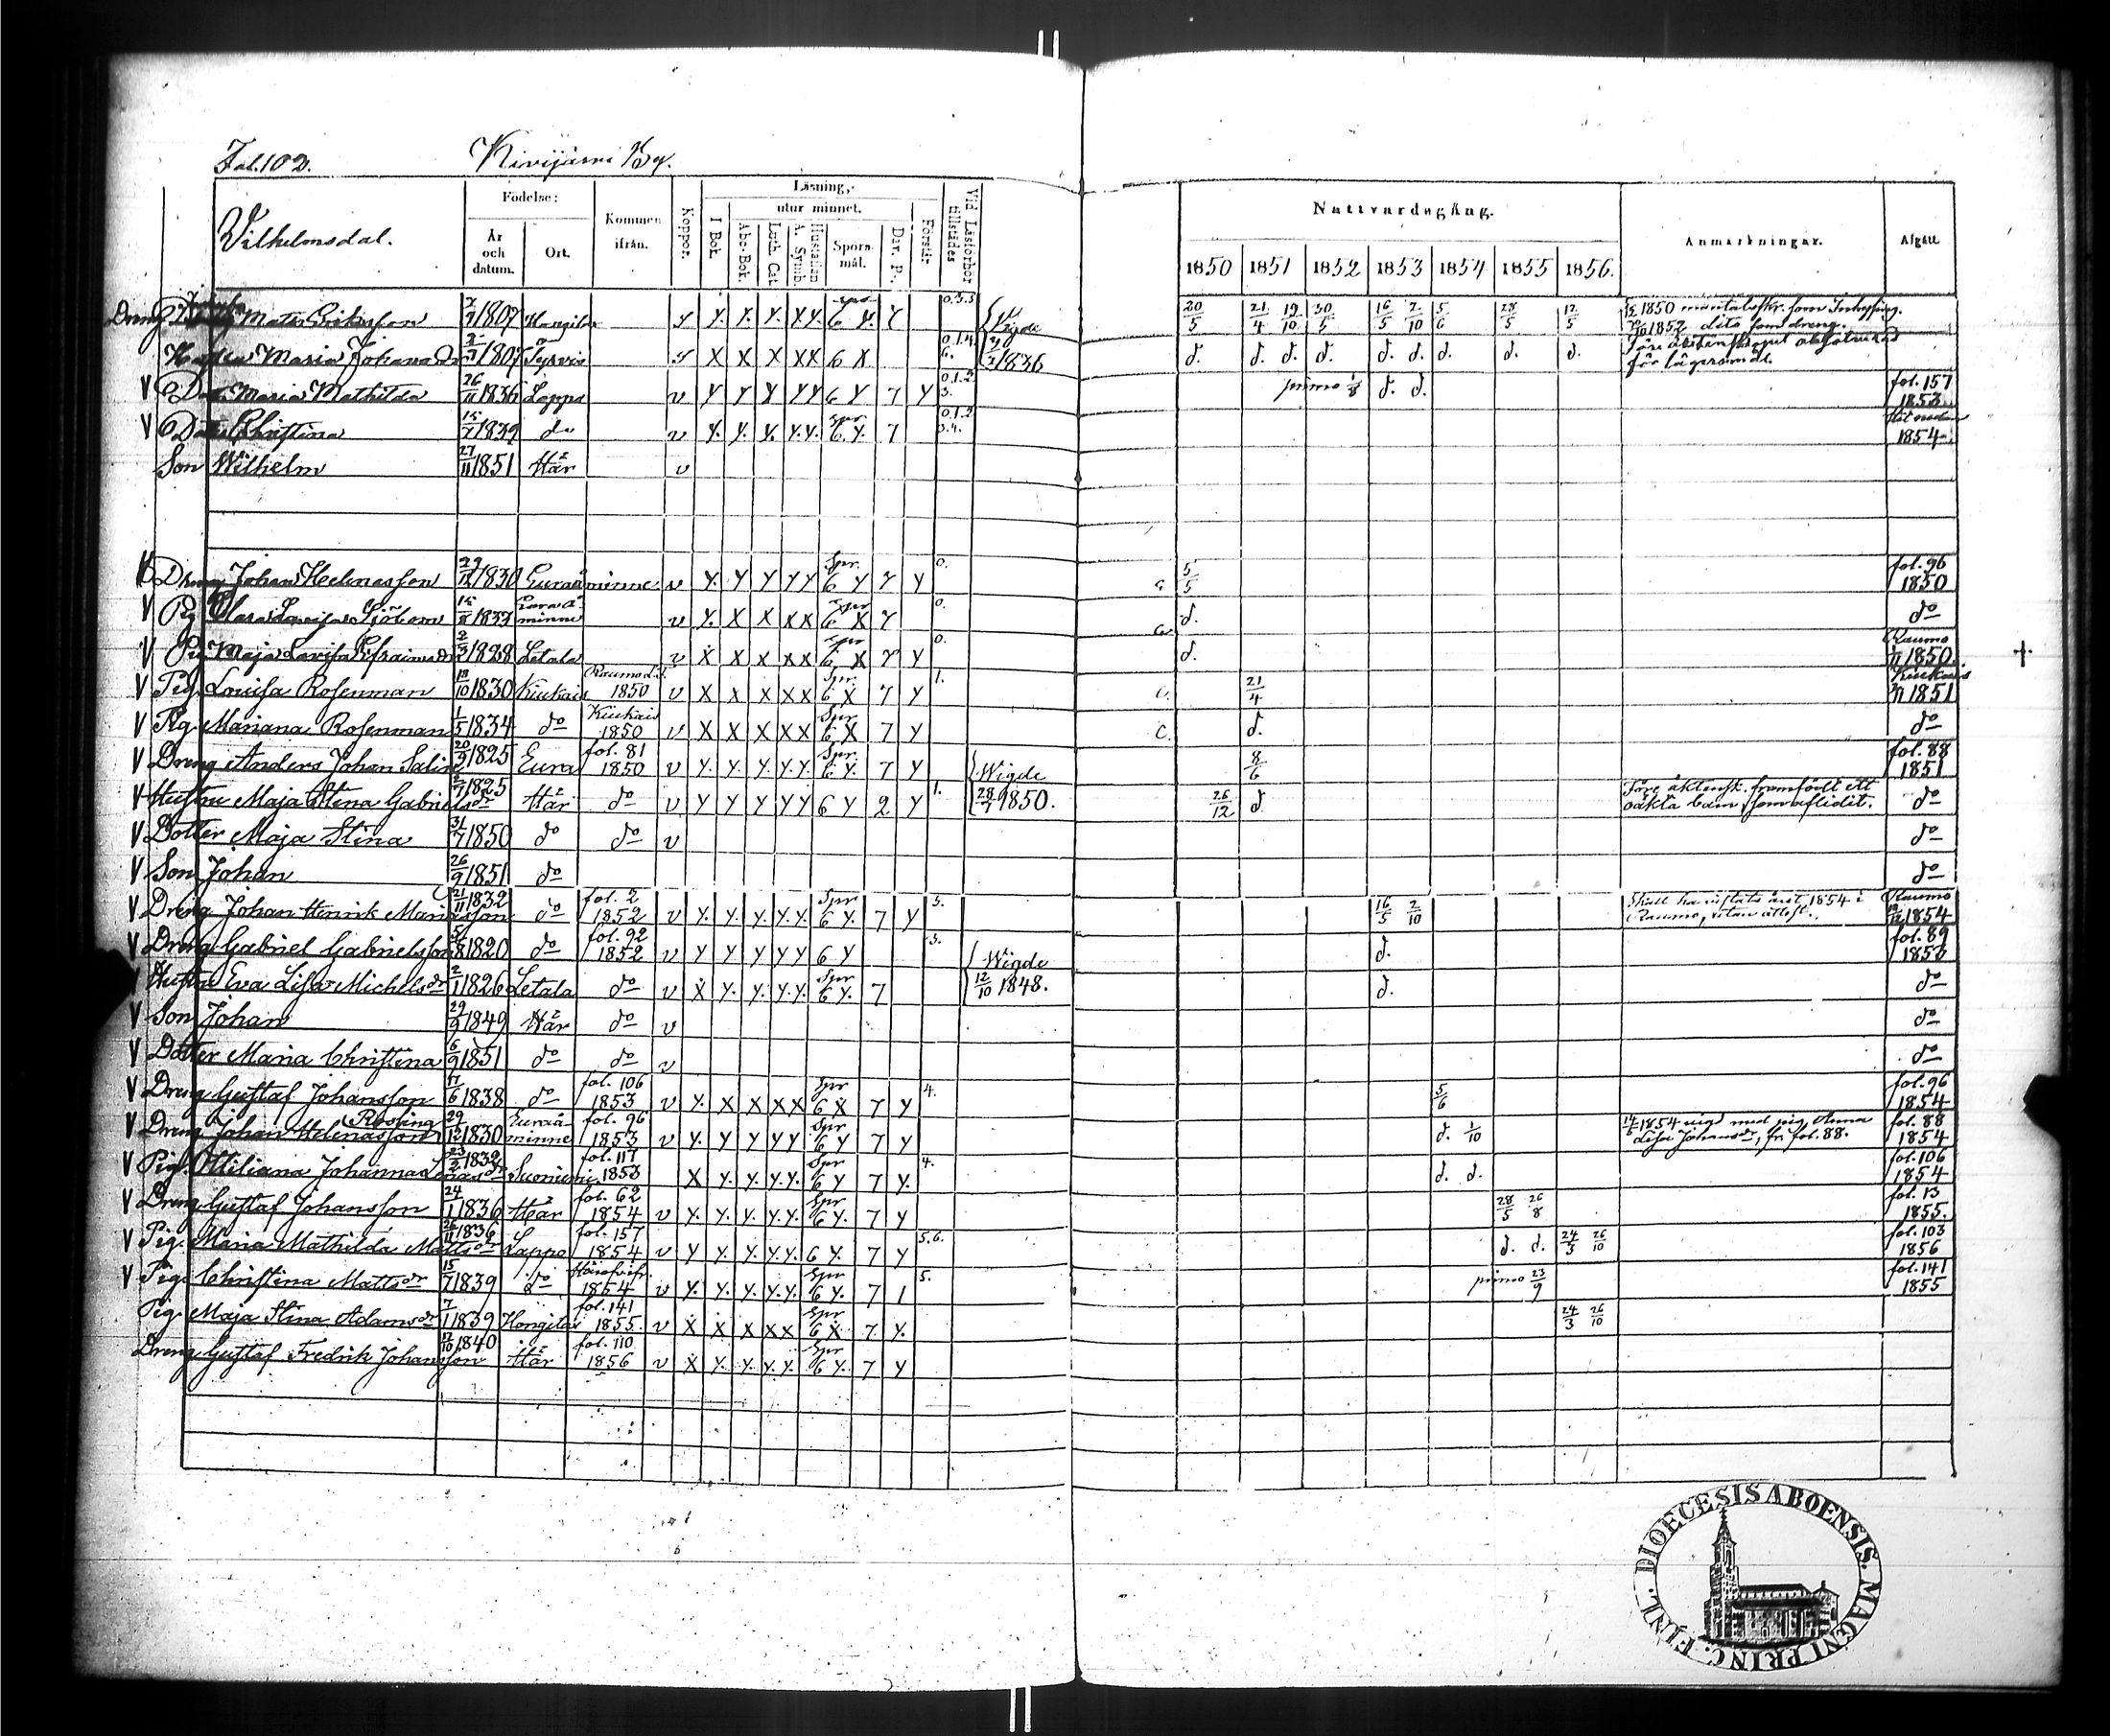 Fol. 102. Kivijärvi By.
Wilhelmsdal. Födelse: År och datum. Ort. Kommen ifrån. Koppor. Läsning, utur minnet. I Bok. Abc-Bok. Luth. Cat. A. Symb. Hustaflan Spörsmål. Dav. P. Förstår Vid Läsförhör tillstädes
Nattvardsgång. 1850 1851 1852 1853 1854 1855 1856. Anmärkningar. Afgått.
Dreng Matts Eriksson 1807 Y. Y. Y. Y.Y. 6 Y. 7 0.3.5 20/5 21/4 19/10 30/5 16/5 2/10 5/6 28/5 12/5
Hustru Maria Johansdr 1807 X X X XX 6 X 0.1.4. 6. 1836 d. d. d. d. d. d. d. d. d.
V Dotter Maria Mathilda 26/11 1836 Lappo v Y Y Y YY 6 Y 7 Y 0.1.2 3. primo d. d. fol. 157 1853.
V Dotter Christina 15/7 1839 do v Y. Y. Y. Y.Y. Spr. 6 Y. 7 0.1.2 3.4. 1854.
Son Wilhelm 27/11 1851 Här v
Dreng Johan Helenasson 29/12 1830 Euraåminne v Y. Y Y YY Spr. 6 Y 7 Y 0. 5/5 fol. 96 1850
V Pig. Clara Lovisa Sjöbom 1837 Euraåminne v Y. X X XX Spr 6 X 7 0. d. do
V Pig. Maja Lovisa Efraimsdr 2/3 1828 Letala v X X X XX Spr 6 X 7 Y 0. d. Raumo 1850.
V Pig. Lovisa Rosenman 19/10 1830 Kiukais Raumo L.F. 1850 v X X X XX Spr. 6 X 7 Y 1. 21/4 Kiukais 1851
V Pig. Mariana Rosenman 1/5 1834 do Kiukais 1850 v X X X XX Spr 6 X 7 Y C. d. do
V Dreng Anders Johan Salin 20/9 1825 Eura fol. 81 1850 v Y. Y. Y. Y.Y. Spr 6 Y. 7 Y Wigde 8/6 fol. 88 1851
V Hustru Maja Stina Gabrielsdr 2/7 1825 Här do v Y Y Y YY 6 Y 2 Y 1. 28/7 1850. 26/12 d. Före äktensk. framfödt ett oäkta barn, som aflidit. do
V Dotter Maja Stina 31/7 1850 do do v do
V Son Johan 26/9 1851 do do
V Dreng Johan Henrik Mariasson 21/11 1832 do fol. 2 1852 v Y. Y. Y. Y.Y. Spr 6 Y. 7 Y 3. 16/5 2/10 Skall ha vistats året 1854 i Raumo, utan attest. Raumo 1854
V Dreng Gabriel Gabrielsson 1820 do fol. 92 1852 v Y Y Y YY 6 Y 3. Wigde d. fol. 89 1853
V Hustru Eva Lisa Michelsdr 2/1 1826 Letala do v X Y. Y. Y.Y. Spr 6 Y. 7 12/10 1848. d. do
V Son Johan 29/9 1849 Här do v do
V Dotter Maria Christina 6/9 1851 do do v do
V Dreng Gustaf Johansson 1838 do fol. 106 1853 v Y. X X XX Spr 6 X 7 Y 4. 5/6 fol. 96 1854
V Dreng Johan Helenasson Rosfing 29/12 1830 Euraåminne fol. 96 1853 v Y. Y Y YY Spr 6 Y 7 Y d. 1/10 1854 vigd med pig. Anna Lisa Johansdr, fr. fol. 88. fol. 88 1854
V Pig. Ottiliana Johanna 23/2 1832 Suoniemi fol. 117 1853 X Y. Y. Y.Y. Spr 6 Y 7 Y. 4. d. d. fol. 106 1854
V Dreng Gustaf Johansson 24/1 1836 Här fol. 62 1854 v Y. Y. Y. Y.Y. Spr 6 Y. 7 Y 28/5 26/8 fol. 13 1855.
V Pig. Maria Mathilda Mattsdr 26/11 1836 Lappo fol. 157 1854 v Y Y. Y. Y.Y. 6 Y. 7 Y 5.6. d. d. 24/3 26/10 fol. 103 1856
V Pig. Christina Mattsdr 15/7 1839 do 1854 v Y. Y. Y. Y.Y. Spr 6 Y. 7 1 5. primo 23/9 fol. 141 1855
Pig. Maja Stina Adamsdr 7/1 1839 Hongilax fol. 141 1855. v X X X XX Spr 6 X 7. Y. 24/3 26/10
Dreng Gustaf Fredrik Johansson 17/10 1840 Här fol. 110 1856 v X Y. Y. Y.Y. Spr 6 Y. 7 Y
FINL. DIOECESIS ABOENSIS. MAGNI PRINC.